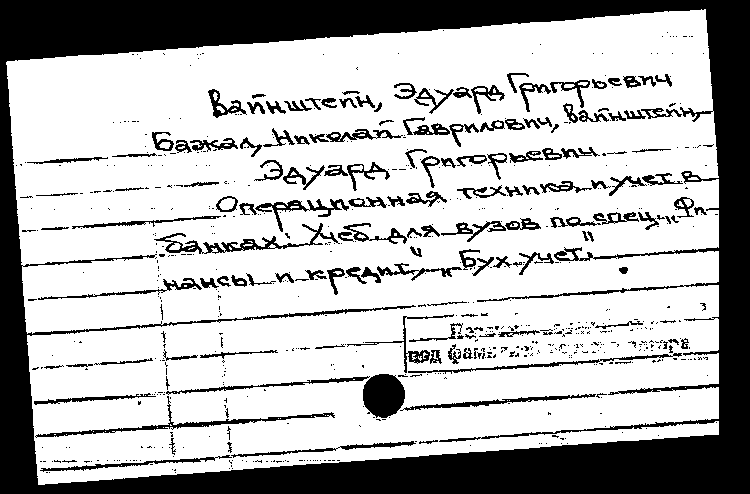 Вайнштейн, Эдуард Григорьевич
Бажал, Николай Гаврилович, Вайнштейн,
Эдуард Григорьевич.
Операционная техника и учет в
банках: Учеб. для вузов по спец. „Фи-
нансы и кредит", „Бух. учет".
3
под